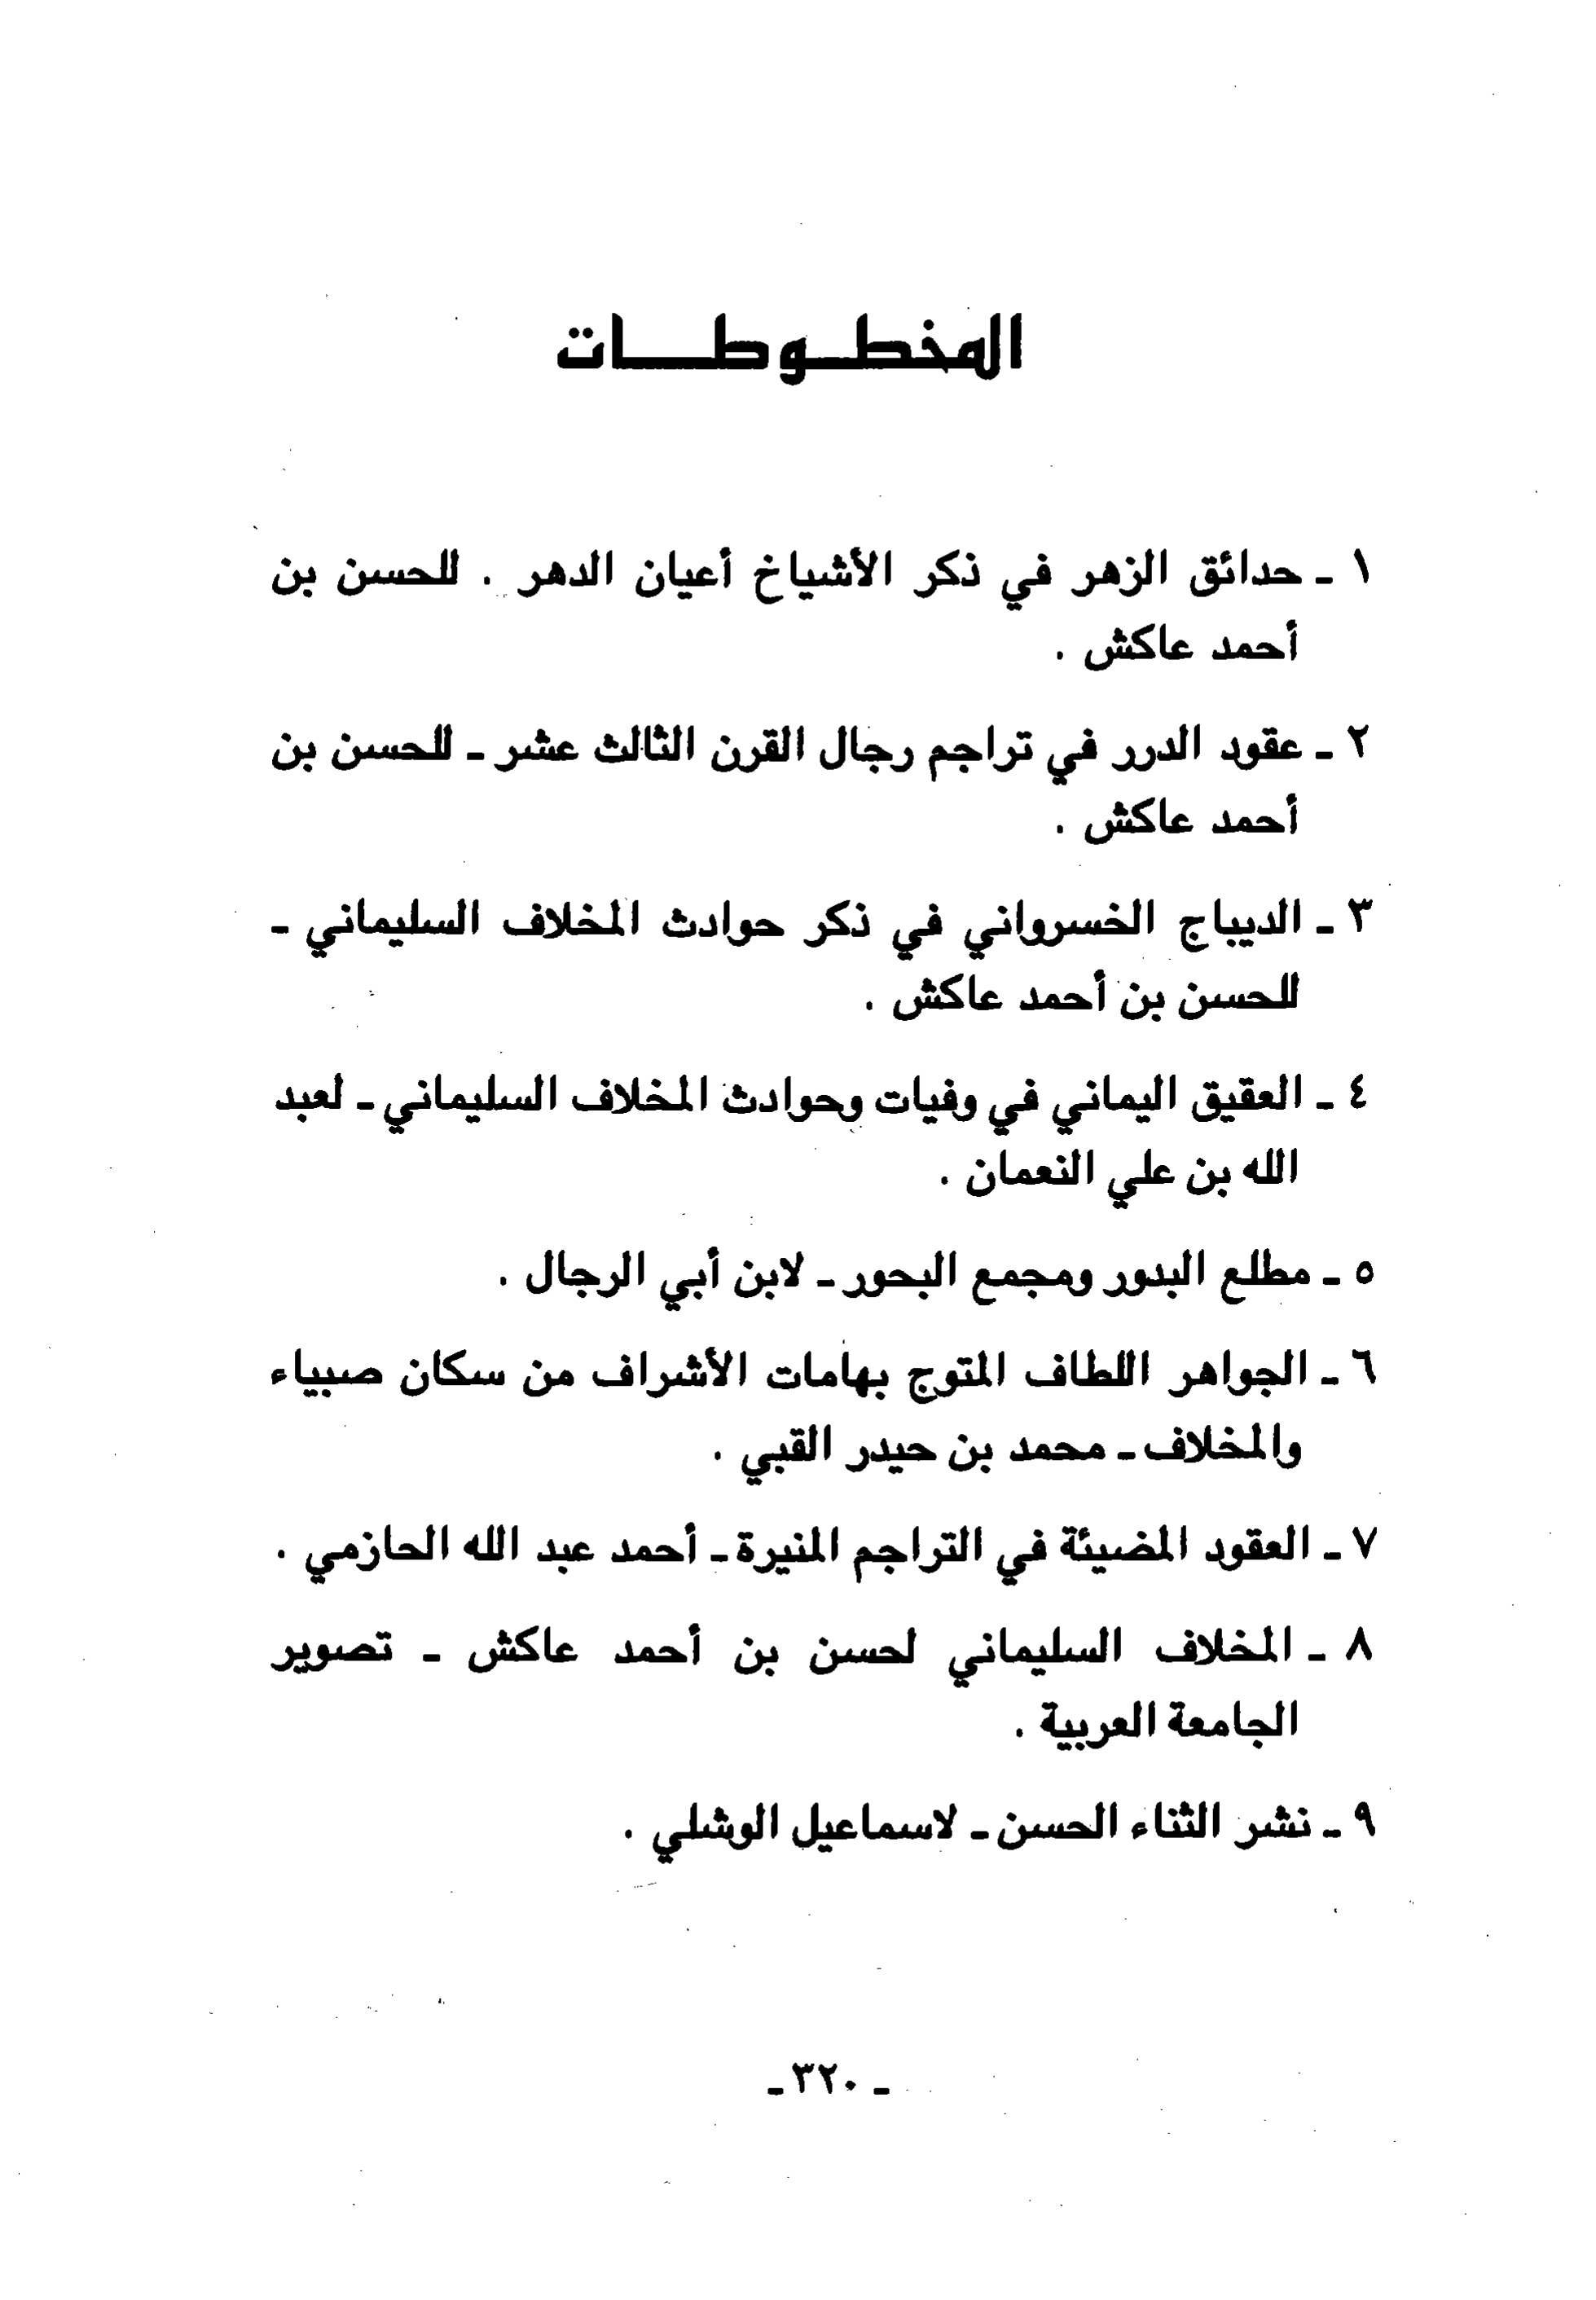 المخطوطات
١ ـ حدائق الزهر في ذكر الأشياخ أعيان الدهر . للحسن بن
أحمد عاكش .
٢ ـ عقود الدرر في تراجم رجال القرن الثالث عشر ـ للحسن بن
أحمد عاكش .
٣ ـ الديباج الخسرواني في ذكر حوادث المخلاف السليماني ـ
للحسن بن أحمد عاكش .
٤ ـ العقيق اليماني في وفيات وحوادث المخلاف السليماني ـ لعبد
الله بن علي النعمان .
٥ ـ مطلع البدور ومجمع البحور ـ لابن أبي الرجال .
٦ ـ الجواهر اللطاف المتوج بهامات الأشراف من سكان صبياء
والمخلاف ـ محمد بن حيدر القبي .
٧ ـ العقود المضيئة في التراجم المنيرة ـ أحمد عبد الله الحازمي .
٨ ـ المخلاف السليماني لحسن بن أحمد عاكش ـ تصوير
الجامعة العربية .
٩ ـ نشر الثناء الحسن ـ لاسماعيل الوشلي .
ـ ٣٢٠ ـ